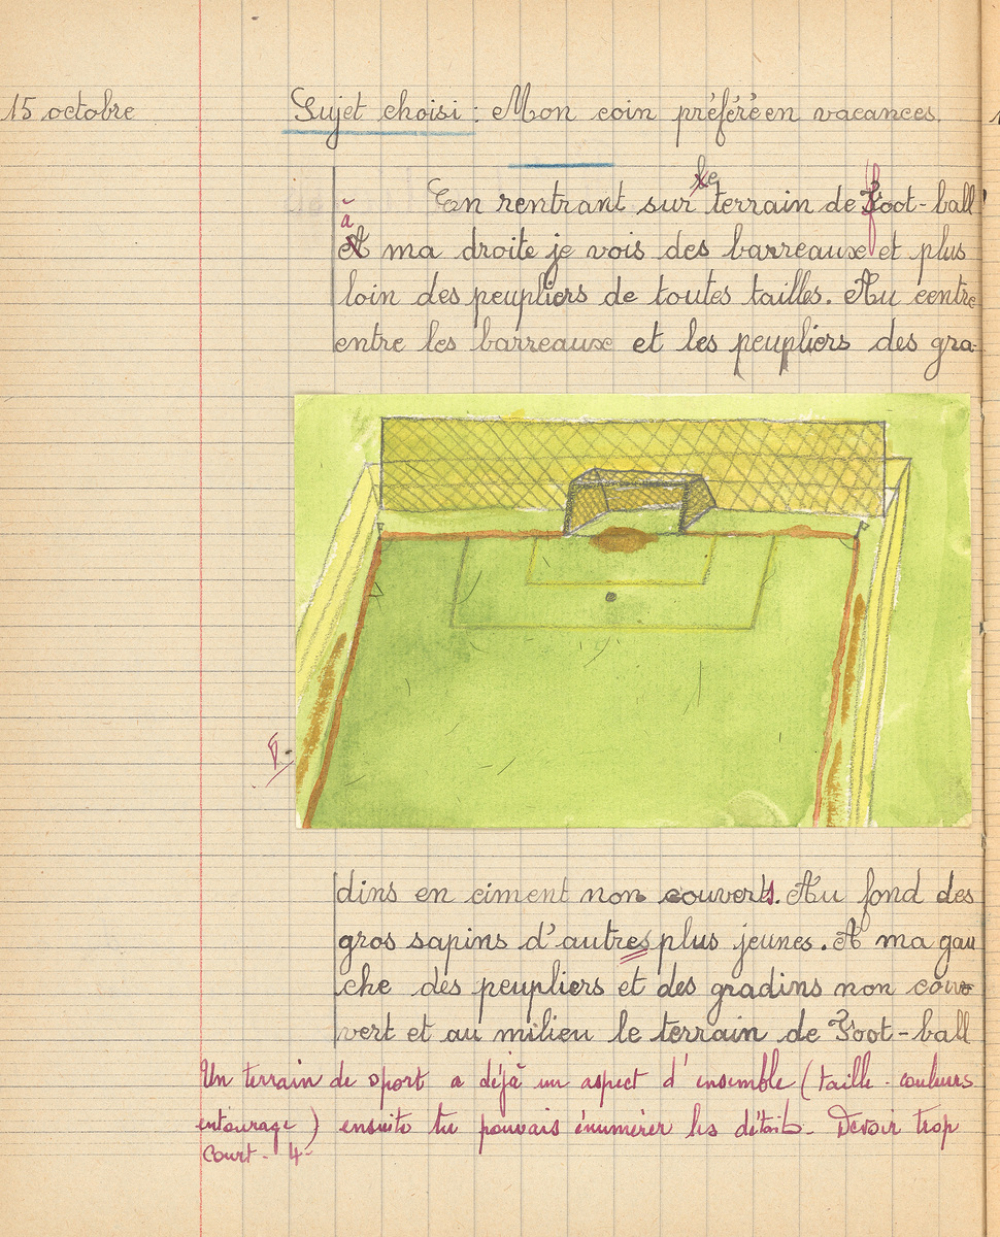 15 octobre
Sujet choisi : Mon coin préféré en vacances.
le
En rentrant sur terrain de foot-ball
à
A ma droite je vois des barreaux et plus
loin des peupliers de toutes tailles. Au centre
entre les barreaux et les peupliers des gra-
dins en ciment non couverts. Au fond des
gros sapins d'autres plus jeunes. A ma gau
che des peupliers et des gradins non cou
vert et au milieu le terrain de Foot-ball
Un terrain de sport a déjà un aspect d'ensemble (taille - couleurs
entourage) ensuite tu pouvais énumérer les détails - Devoir trop
court - 4-